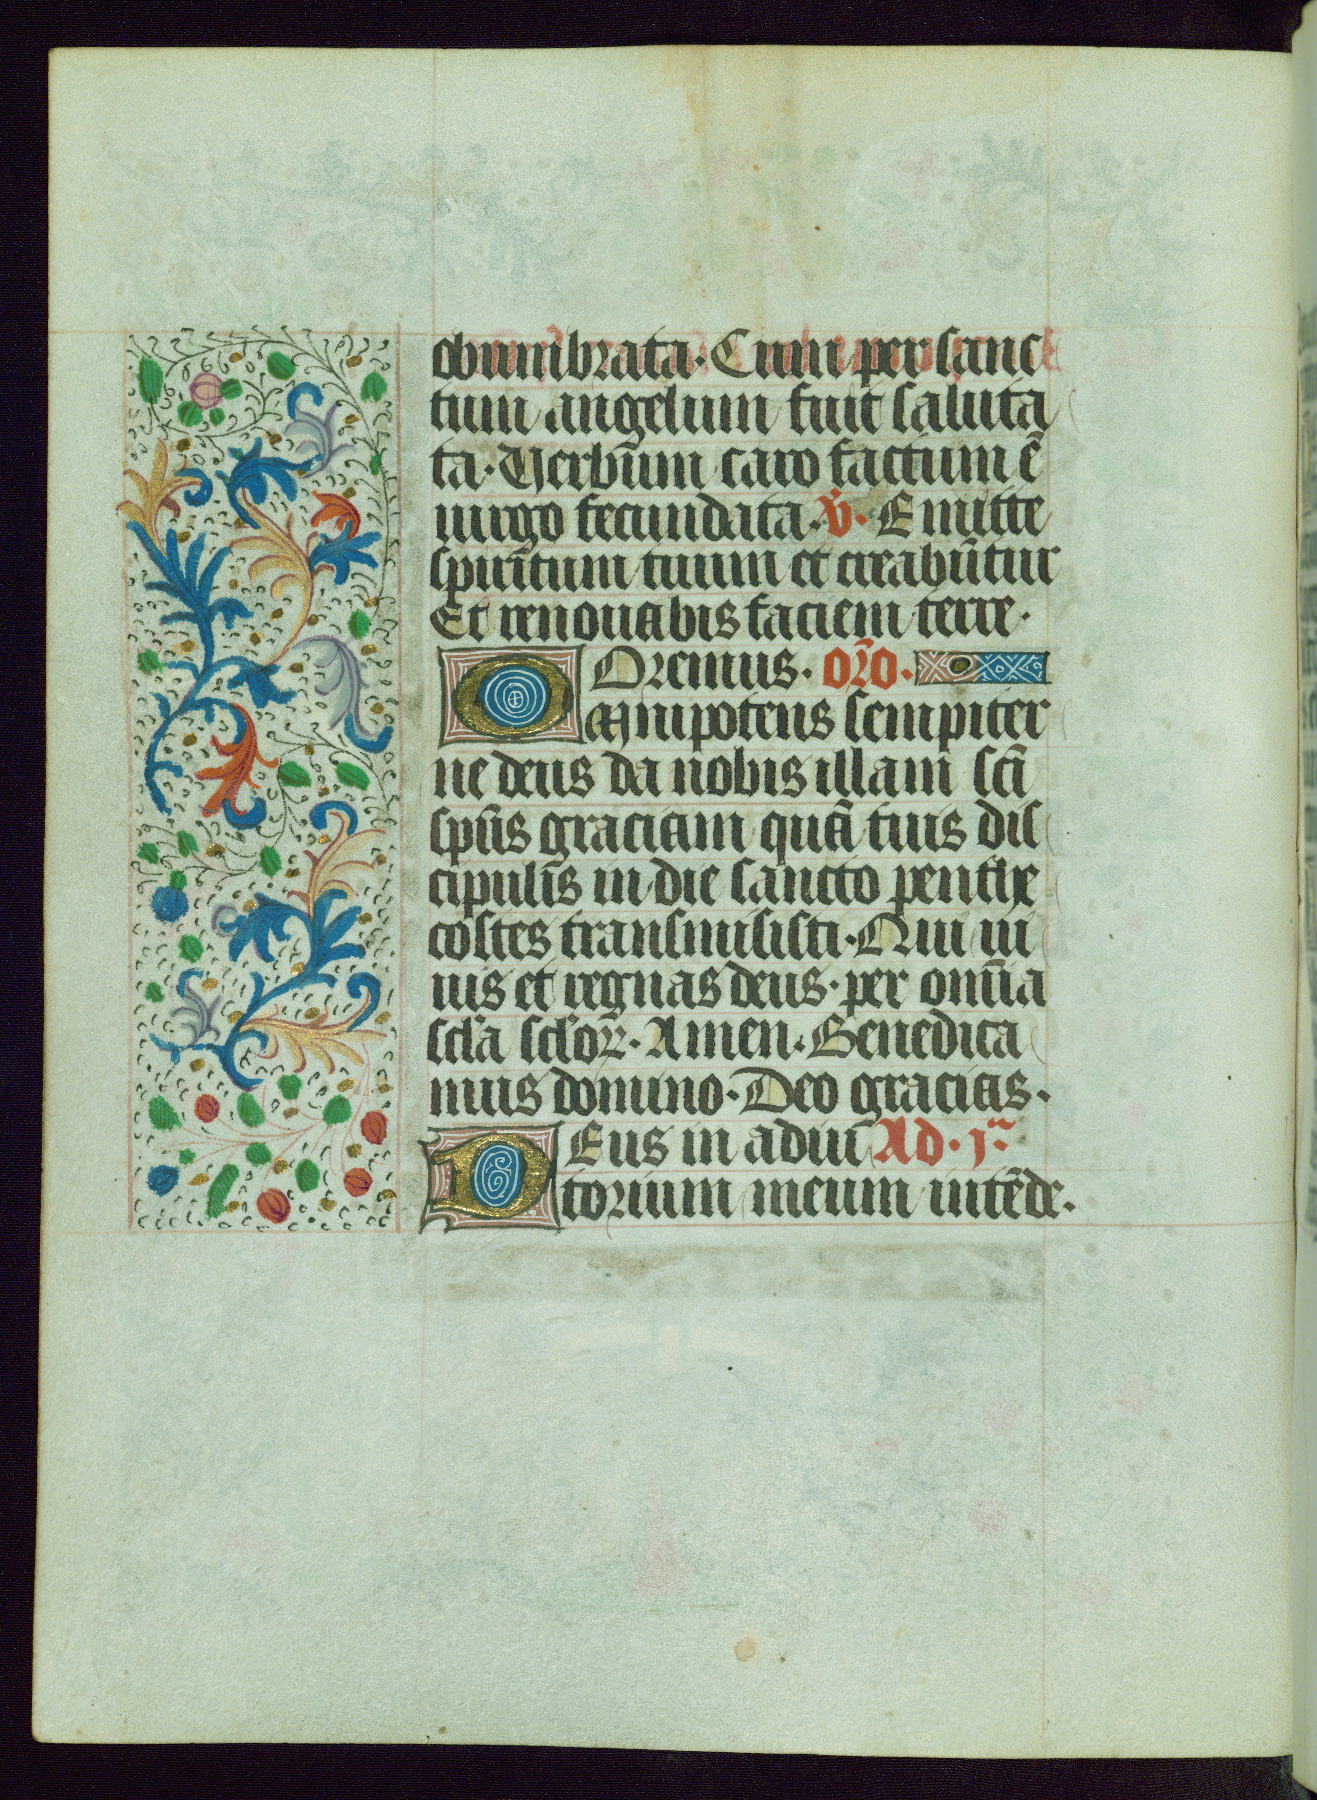 obumbrata. Cum per sanc
tum angelum fuit saluta
ta. Verbūm caro factum ē
uirgo fecundata. v̄. Emitte
spirītum tuum et creabūtur
Et renouabis faciem terre.
Oremus. or̄o.
Omnipotens sempiter
ne deus da nobis illam sc̄i
sp̄us graciam quā tuis dis
cipulīs in die sancto penthe
costes transmisisti. Qui ui
uis et regnas deus. per om̄ia
sc̄la sc̄loꝝ. Amen. Benedica
mus domino. Deo gracias.
Deus in adiu Ad .jª
torium meum intēde.